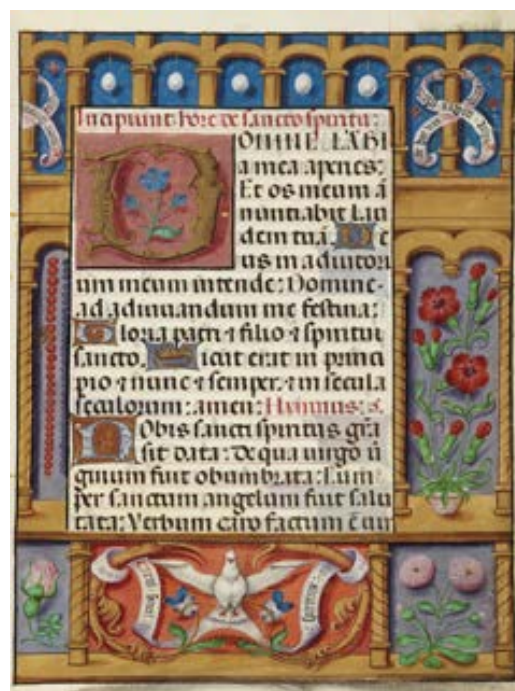 Incipiunt hore de sancto spiritu:
DOMINE LABI
a mea aperies:
Et os meum ā
nuntiabit lau
dem tuā. De
us in adiutori
um meum intende: Domine
ad adiuuandum me festina:
Gloria patri ⁊ filio ⁊ spiritui
sancto. Sicut erat in princi
pio ⁊ nunc ⁊ semper, ⁊ in secula
seculorum: amen: Hymnus: s.
Nobis sancti spiritus grā
sit data: De qua uirgo ū
ginum fuit obumbrata: Cum
per sanctum angelum fuit salu
tata: Verbum caro factum ē